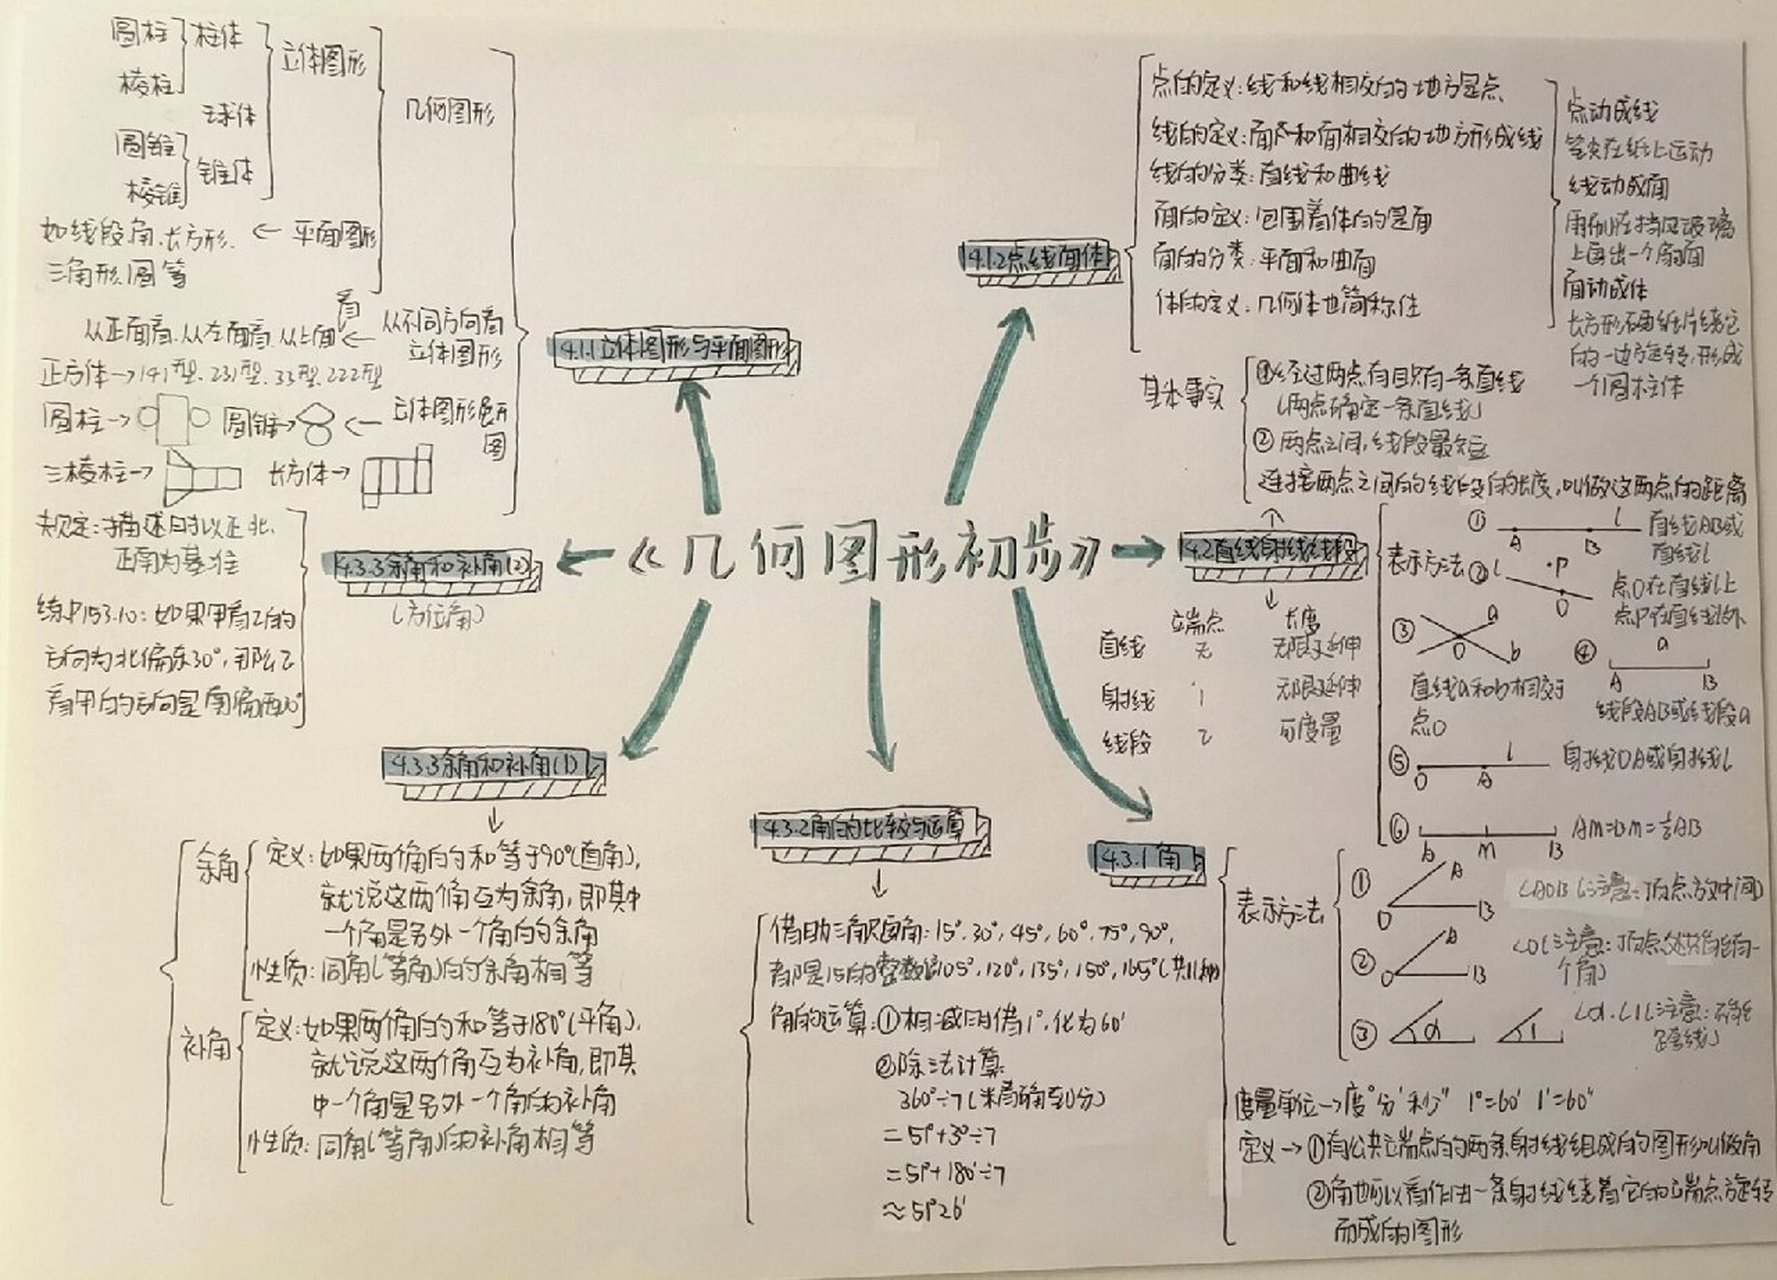 《几何图形初步》
4.1.1立体图形与平面图形
几何图形
立体图形
圆柱
棱柱
柱体
球体
圆锥
棱锥
锥体
平面图形
如线段.角.长方形.
三角形.圆等
从不同方向看
立体图形
从正面看.从左面看.从上面看
立体图形展开图
正方体→141型.231型.33型.222型
圆柱→
圆锥→
三棱柱→
长方体→
4.1.2点线面体
点的定义:线和线相交的地方是点
线的定义:面和面相交的地方形成线
线的分类:直线和曲线
面的定义:包围着体的是面
面的分类:平面和曲面
体的定义:几何体也简称体
点动成线
笔尖在纸上运动
线动成面
雨刷在挡风玻璃
上画出一个扇面
面动成体
长方形硬纸片绕它
的一边旋转,形成
一个圆柱体
4.2直线射线线段
基本事实
①经过两点有且只有一条直线
(两点确定一条直线)
②两点之间,线段最短
连接两点之间的线段的长度,叫做这两点的距离
端点 长度
直线 无 无限延伸
射线 1 无限延伸
线段 2 可度量
表示方法
① A B l 直线AB或
直线l
② l ·P O 点O在直线l上
点P在直线l外
③ a O b
直线a和b相交于
点O
④ a A B
线段AB或线段a
⑤ O A l 射线OA或射线l
⑥ M B AM=BM=½AB
4.3.1角
表示方法
① A O B ∠AOB(注意:顶点放中间)
② O B ∠O(注意:顶点处只能有一
个角)
③ α 1 ∠α.∠1(注意:
)
度量单位→度°分′秒″ 1°=60′ 1′=60″
定义→①有公共端点的两条射线组成的图形叫做角
②角也可以看作由一条射线绕着它的端点旋转
而成的图形
4.3.2角的比较与运算
借助三角尺画角:15°.30°,45°,60°,75°,90°,
都是15的整数倍105°,120°,135°,150°,165°(共11种)
角的运算:①相减时借1°.化为60′
②除法计算
360°÷7(精确到分)
=51°+3°÷7
=51°+180′÷7
≈51°26′
4.3.3余角和补角(1)
余角
定义:如果两个角的和等于90°(直角),
就说这两个角互为余角,即其中
一个角是另外一个角的余角
性质:同角(等角)的余角相等
补角
定义:如果两个角的和等于180°(平角),
就说这两个角互为补角,即其
中一个角是另外一个角的补角
性质:同角(等角)的补角相等
4.3.3余角和补角(2)
(方位角)
规定:描述时以正北.
正南为基准
练.P153.10:如果甲看乙的
方向为北偏东30°,那么乙
看甲的方向是南偏西30°